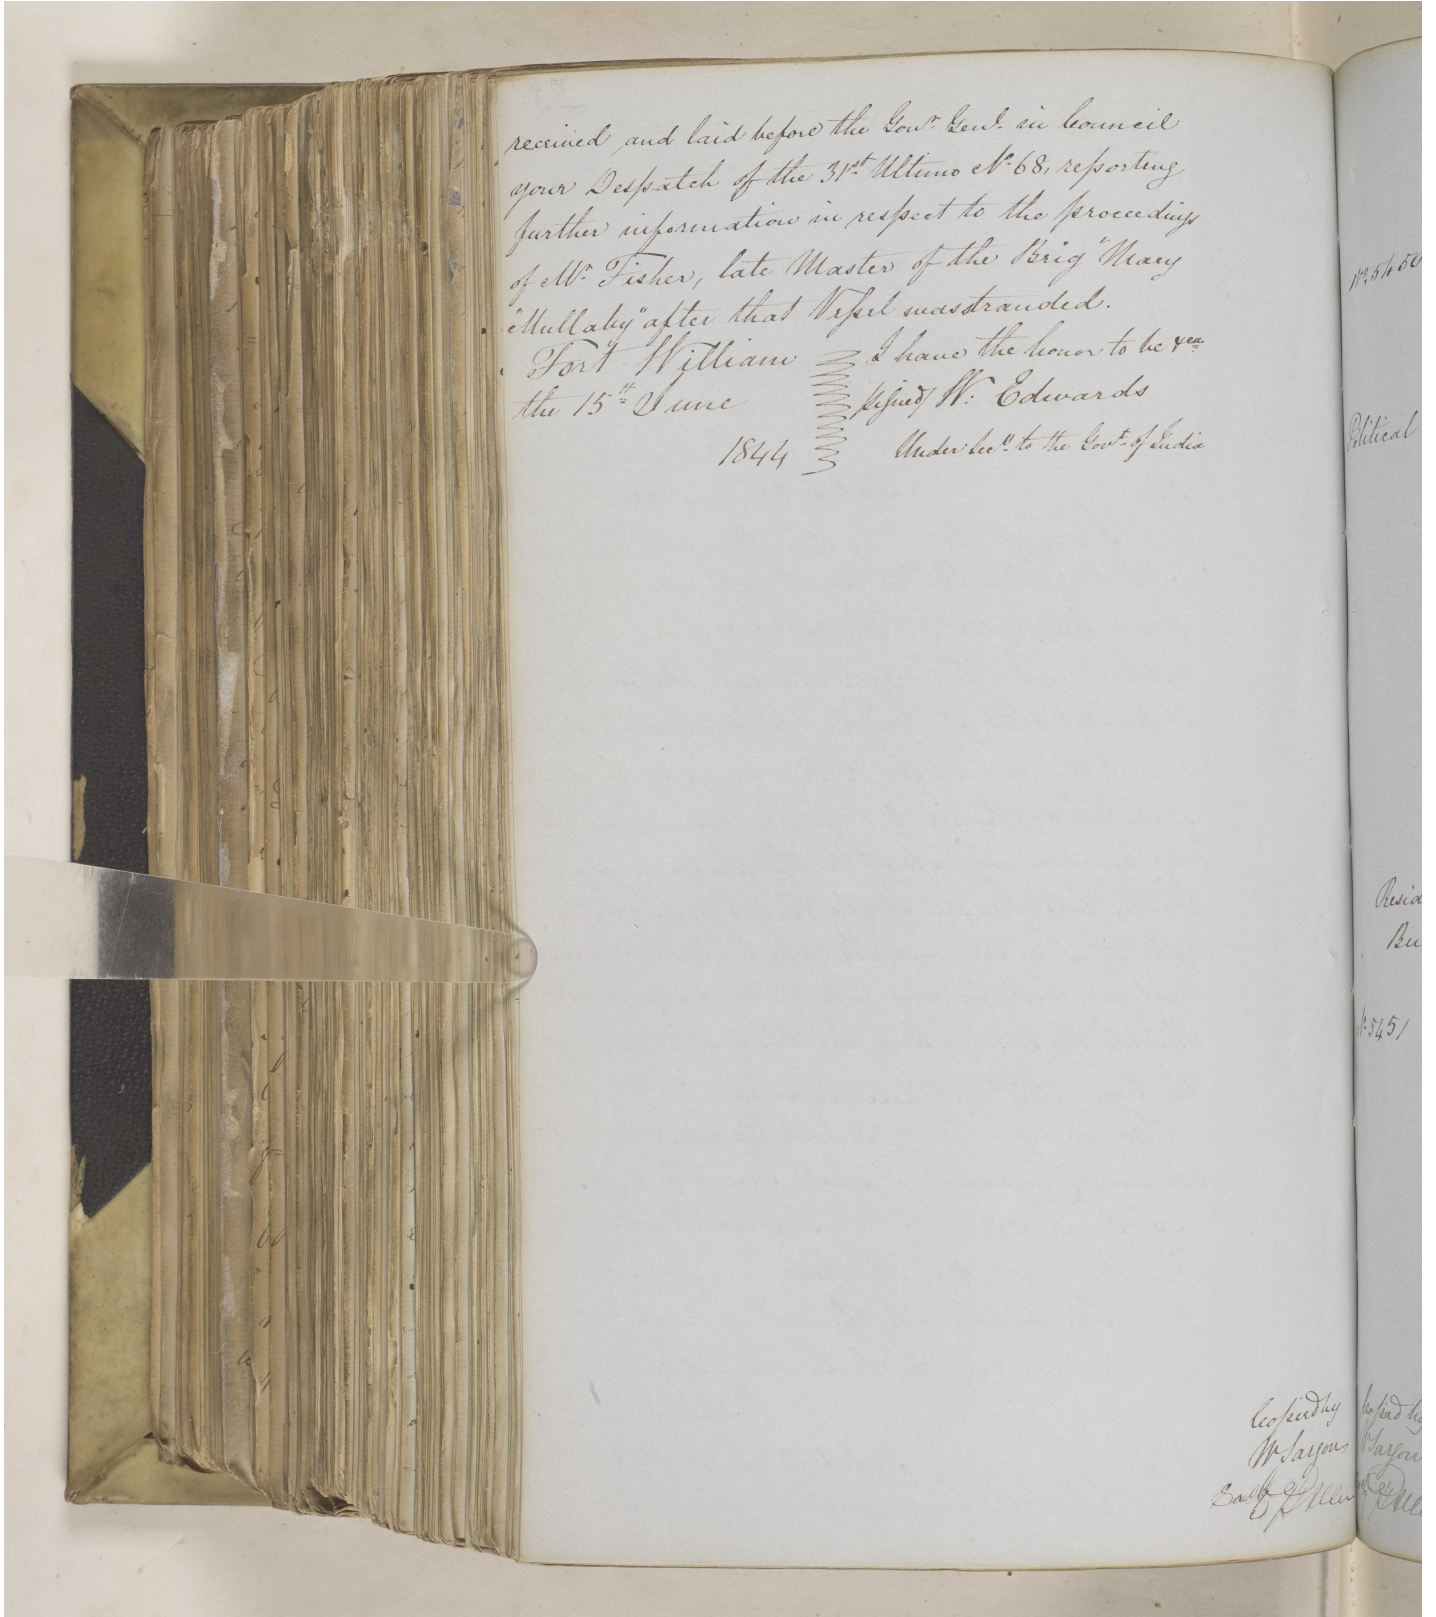 received and laid before the Govr. Genl. in Council
your Despatch of the 31st Ultimo No. 68, reporting
further information in respect to the proceedings
of Mr. Fisher, late Master of the Brig "Mary
"Mullaby" after that Vessel was stranded.
Fort William I have the honor to be &ca
the 15th June signed/ W: Edwards
1844 Under Secy. to the Govt. of India
Copied by
W Sargon
No. 5450
Political
Resid
Bu
No. 5451
Copied by
W Sargon